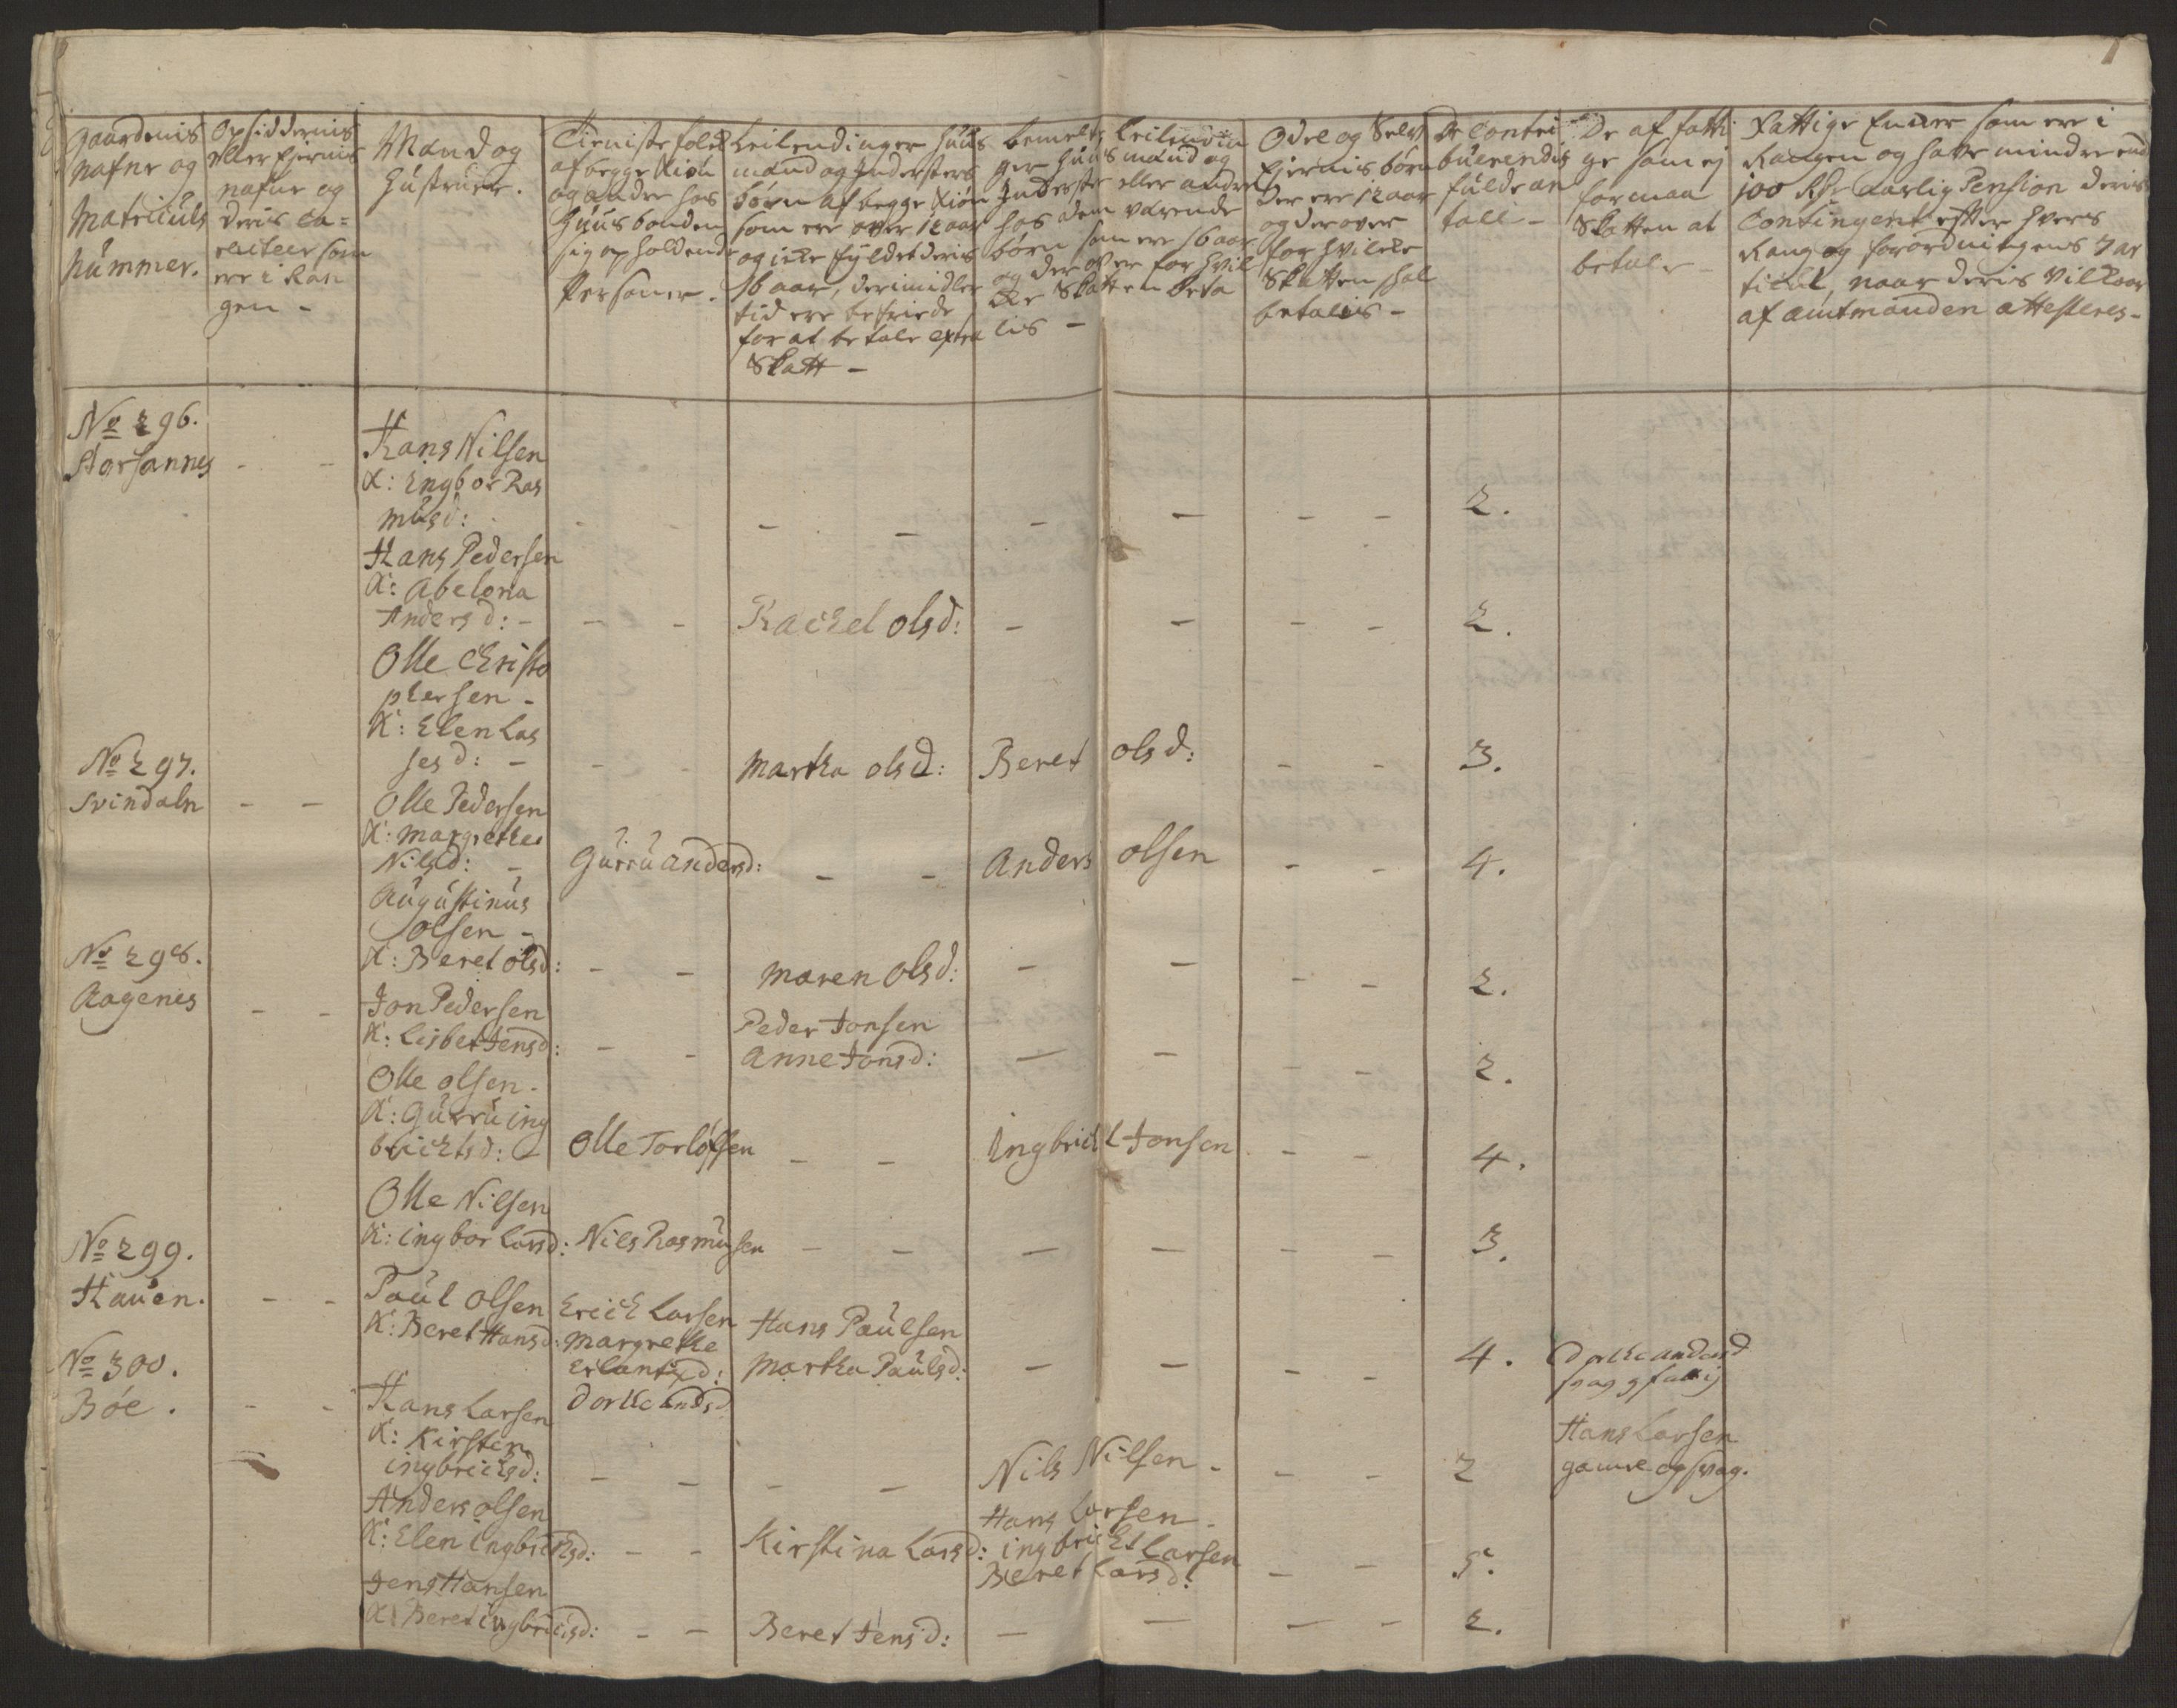 Gaardenis
nafne og
Matriculs
Nummer.
Opsiddernis
eller Ejernis
nafne og
deris Ca=
racteer som
ere i Ran
gen -
Mand og
Hustruer.
Tieniste folck
af begge Kiön
og andre hos
Huusbonden
sig opholdende
Persohner.
Leilendinger Huus
mænd og Indersters
börn af begge Kiön
som ere over 12 aar
og icke fyldet deris
16 aar, derimidler
tid ere befriede
for at betale Extra
Skatt -
bemelte Leilendin
ger Huusmænd og
Inderster eller andre
hos dem værende
börn som ere 16 aar
og der over for hvil
cke Skatten beta
lis -
Odel og Selv
Ejernis börn
der ere 12 aar
og derover
for hvilcke
Skatten skal
betalis -
De Contri
buerendis
fulde an
tall -
De af fatti
ge som ej
formaa
Skatten at
betale -
Fattige Encker som ere i
Rangen og have mindre end
100 Rdr aarlig Pension deris
Contingent efter hvers
Rang og forordningens 7 ar
ticul, naar deris Vilkaar
af amtmanden attesteres -
No 296.
Storsannes - -
Hans Nilsen
K: Engbor Ras
musd: - - - - - - - - 2.
Hans Pedersen
K: Abelona
Andersd: - - - Rachel olsd: - - - - 2.
Olle Christo
phersen -
K: Elen Las
sesd: - - - Martha olsd: Beret olsd: - - 3.
No 297.
Svindaln - - Olle Pedersen
K: Margrethe
Nilsd: - Gurru andersd: - - Anders olsen - - 4.
Augustinus
olsen -
K: Beret olsd: - - Maren olsd: - - - - 2.
No 298.
Aagenes - - Jon Pedersen
K: Lisbet Jensd: - - Peder Jonsen
Anne Jonsd: - - - - 2.
Olle olsen -
K: Gurru ing
brichtsd: - Olle Torlofsen - - Ingbricht Jonsen - - 4.
Olle Nilsen
K: ingbor Larsd: Nils Rasmusen - - - - - - 3.
No 299.
Hauen. - - Paul olsen
K: Beret Hansd:
Erich Larsen
Margrethe
Erlantsd:
Dorthe Andsd
Hans Paulsen
Martha Paulsd: - - - - 4. Dorthe andersd
svag g fattig
No 300.
Böe. - - Hans Larsen
K: Kirsten
ingbrichsd: - - - - Nils Nilsen - - - 2
Hans Larsen
gamel og svag.
Anders olsen
K: Elen ingbrichsd: - - Kirstina Larsd:
Hans Larsen -
ingbricht Larsen
Beret Larsd: - - 5.
Jens Hansen
K: Beret ingbrichsd: - - Beret Jensd: - - - - 2.